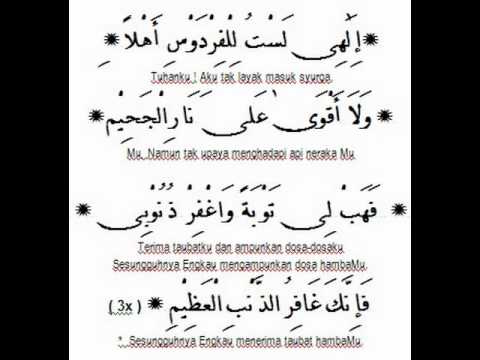 إِلٰهِي لَسْتُ لِلْفِرْدَوْسِ أَهْلاً
Tuhanku ! Aku tak layak masuk syurga.
وَلَا أَقْوَى عَلَى نَارِ الْجَحِيْمِ
Mu .Namun tak upaya menghadapi api neraka Mu
فَهَبْ لِي تَوْبَةً وَاغْفِرْ ذُنُوْبِي
Terima taubatku dan ampunkan dosa-dosaku
Sesungguhnya Engkau mengampunkan dosa hambaMu.
فَإِنَّكَ غَافِرُ الذَّنْبِ الْعَظِيْمِ ( 3x )
* Sesungguhnya Engkau menerima taubat hambaMu.